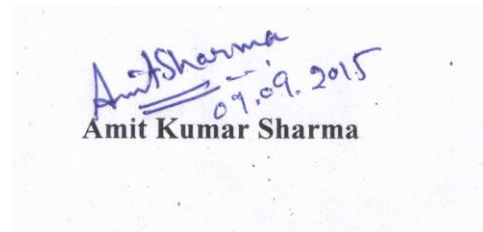 Amit Sharma
09.09.2015
Amit Kumar Sharma